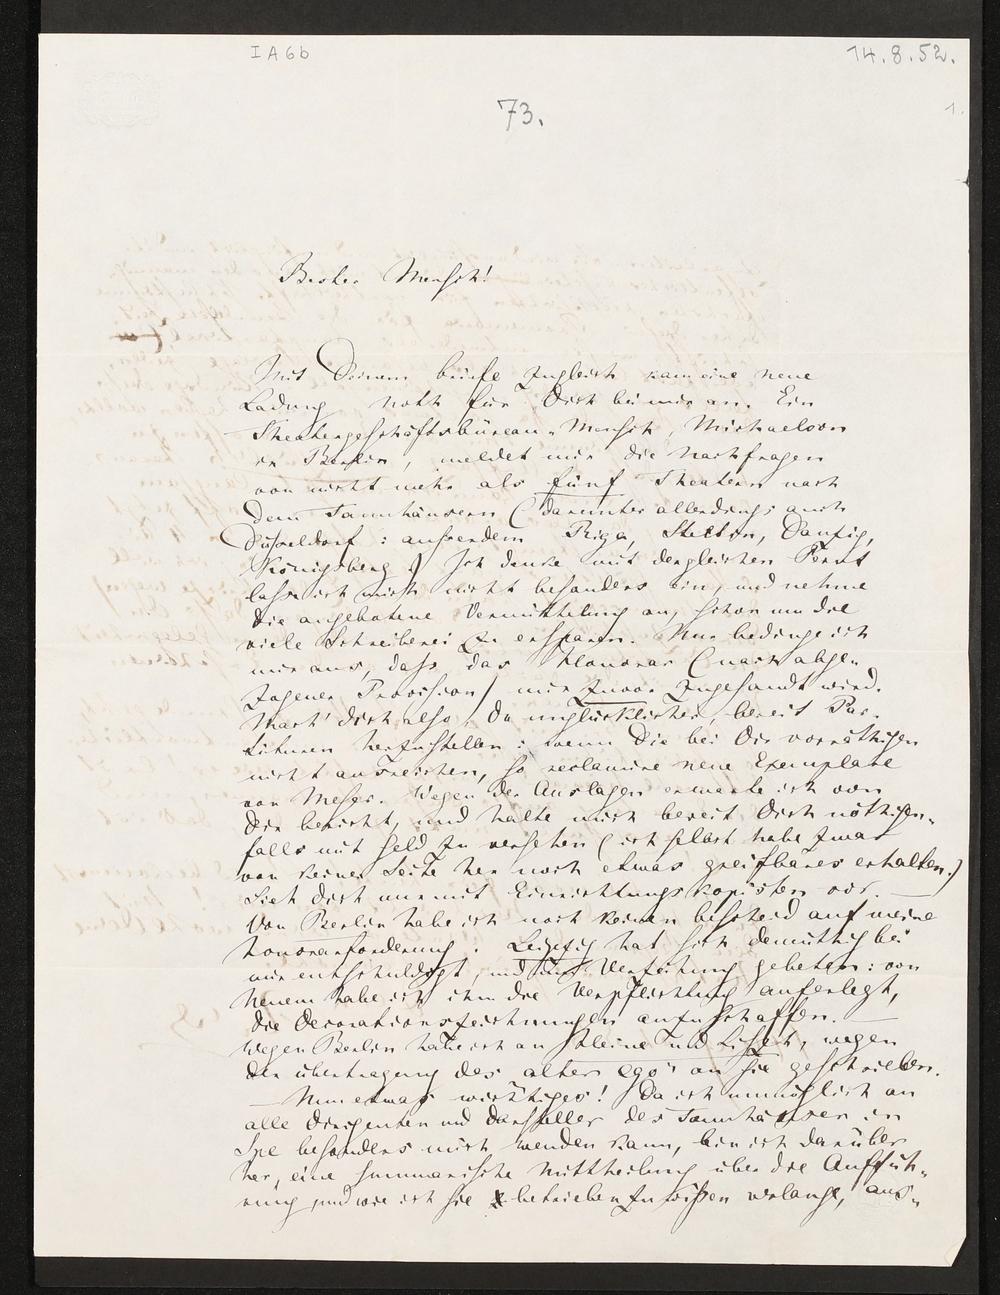 I A 6 b
14.8.52.
73.
1.
Bester Mensch!
Mit Deinem briefe zugleich kam eine neue
Ladung noth für Dich bei mir an. Ein
Theatergeschäftsbüreau-Mensch, Michaelson
in Berlin, meldet mir die Nachfragen
von nicht mehr als fünf Theatern nach
dem Tannhäusern (darunter allerdings auch
Düsseldorf: außerdem Riga, Stettin, Danzig,
Königsberg.) Ich denke mit dergleichen
lasse ich mich nicht besonders ein, und nehme
die angebotene Vermittelung an, schon um die
viele Schreiberei zu ersparen. Nur bedinge ich
mir aus, dass das Honorar (nach abge-
zogener Provision) mir zuvor zugesandt wird.
Mach' dich also, Du unglücklicher, bereit Par-
tituren herzustellen: wenn die bei Dir vorräthigen
nicht ausreichen, so reclamire neue Exemplare
von Meser. Wegen der Auslagen erwarte ich von
Dir bericht, und halte mich bereit Dich nöthigen-
falls mit Geld zu versehen (ich selbst habe zwar
von keiner Seite her noch etwas greifbares erhalten.)
Sieh dich nur mit Einrichtungskopisten vor. —
Von Berlin habe ich noch keinen bescheid auf meine
honorarforderung. Leipzig hat sich demüthig bei
mir entschuldigt, und um Verzeihung gebeten: von
Neuem habe ich ihm die Verpflichtung auferlegt,
die Decorationszeichnungen anzuschaffen. —
Wegen Berlin habe ich an Kleine und Liszt, wegen
der übertragung des alter ego's an sie geschrieben.
— Nun etwas wichtiges! Da ich unmöglich an
alle Dirigenten und Darsteller des Tannhäuser in
Spe besonders mich wenden kann, bin ich darüber
her, eine summarische Mittheilung über die Auffüh-
rung, und wie ich sie betrieben zu wissen verlange, aus-